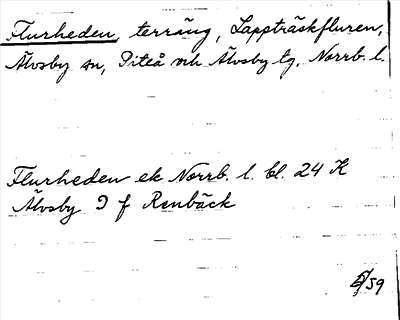 Flurheden, terräng, Lappträskfluren,
Älvsby sn, Piteå och Älvsby tg, Norrb. l.
Flurheden ek Norrb. l. bl. 24 K
Älvsby 9 f Renbäck
/59